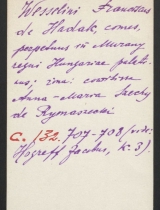 Wesselini Franciscus
de Hadak, comes,
perpetuus in Murany
regni Hungariae palati-
nus; ima: consors
Anna-Maria Szechy
de Rymaszecki
C. 132. 707-708 (vide:
Hogreff Jacobus, k. 3)